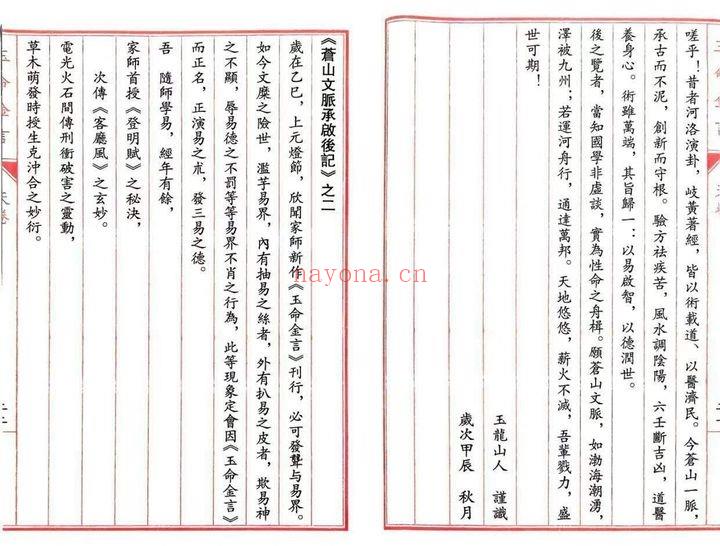 嗟乎！昔者河洛演卦，岐黃著經，皆以術載道、以醫濟民。今蒼山一脈，
承古而不泥，創新而守根。驗方祛疾苦，風水調陰陽，六壬斷吉凶，道醫
養身心。術雖萬端，其旨歸一：以易啟智，以德潤世。
後之覽者，當知國學非虛談，實為性命之舟楫。願蒼山文脈，如渤海潮湧，
澤被九州；若運河舟行，通達萬邦。天地悠悠，薪火不滅，吾輩戮力，盛
世可期！
玉龍山人 謹識
歲次甲辰 秋月
《蒼山文脈承啟後記》之二
歲在乙巳，上元燈節，欣聞家師新作《玉命金言》刊行，必可發聾與易界。
如今文糜之險世，濫芋易界，內有抽易之絲者，外有扒易之皮者，欺易神
之不顯，辱易德之不罰等等易界不肖之行為，此等現象定會因《玉命金言》
而正名，正演易之朮，發三易之德。
吾 隨師學易，經年有餘，
家師首授《登明賦》之秘決，
次傳《客廳風》之玄妙。
電光火石間傳刑衝破害之靈動，
草木萌發時授生克沖合之妙衍。
玉命金言
天卷
nayona.cn